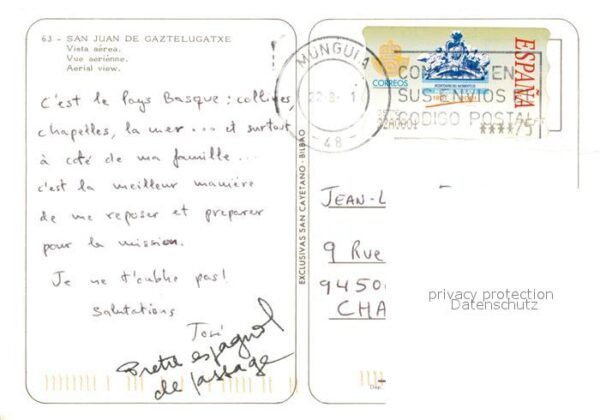 63 - SAN JUAN DE GAZTELUGATXE
Vista aérea.
Vue aérienne.
Aerial view.
C'est le Pays Basque : collines,
chapelles, la mer... et surtout
à côté de ma famille...
c'est la meilleur manière
de me reposer et preparer
pour la mission.
Je ne t'oublie pas!
Salutations
José
Pretre espagnol
de passage
EXCLUSIVAS SAN CAYETANO - BILBAO
MUNGUIA
- 48 -
CORREOS
ESPAÑA
EN
SUS ENVIOS
CODIGO POSTAL
****75
JEAN-L
9 Rue
9450
CHA
privacy protection
Datenschutz